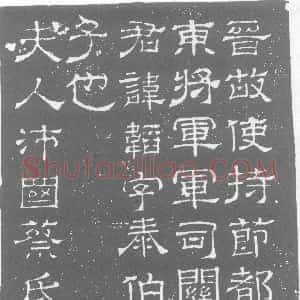 晉故使持節都
東將軍軍司關
君諱韜字泰伯
子也
夫人沛國蔡氏
Shufaziliao.COM